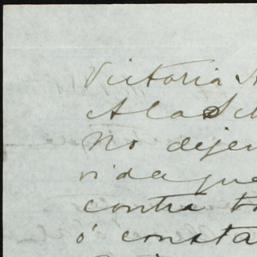 Victoria A
A la Se
No dejen
vida que
contra to
ó consta